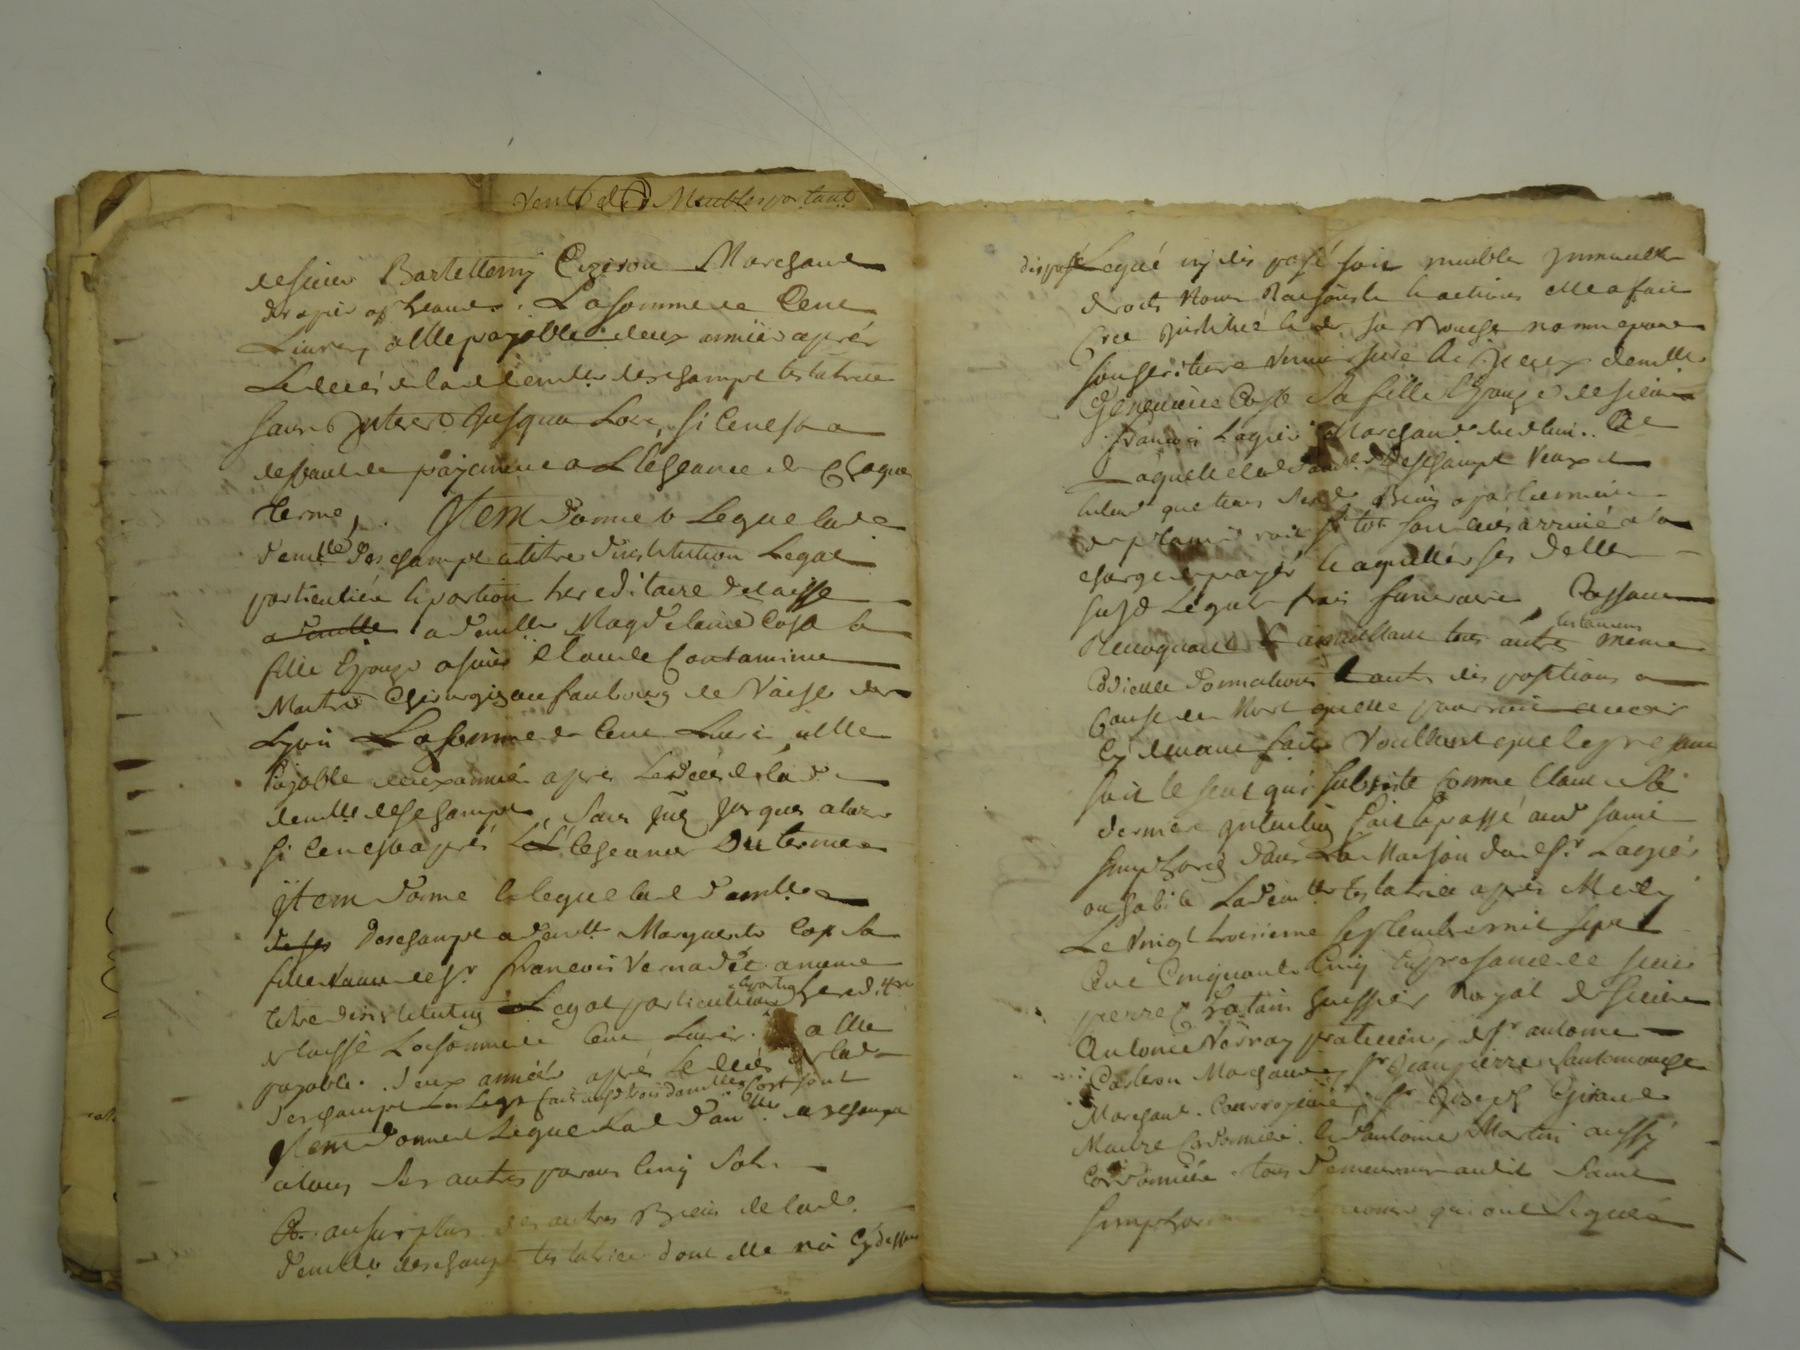 Vente de Meubles portant
de sieur Bartellemy Cizeron Marchand
drapier a La somme de Cent
Livres a Elle payable deux année aprés
Le decés de la de demlle deschamps testatrice
sans Jnterest Jusqua Lors, si ce nest a
deffaut de payement a LEsgeance de Chaque
terme, Jtem donne & Legue lade
demlle deschamps a titre dinstitution Legat
particuliére & portion hereditaire delaisse
a demlle Magdelaine Cost sa
fille Epouze a sieur Claude Contamine
Maitre Chirurgien au faubourg de Vaise de
Lyon La somme de Cent Livres a Elle
Payable deux année apres Le decés de la de
demlle deschamps, sans Jusques alors
si ce nest aprés LEsgeance Du terme
jtem donne & legue lad demlle
deschamps a demlle Marguerite Cost sa
fille Vauve de Sr francois Vernadet a meme
titre dinstitution Legat particuliere & portion heredittre
delaissé La somme de Cent Livres a Elle
payable deux année aprés Le decés de lade
deschamps Les Legs fait aux trois demlles Cost sont
Jtem donne & Legue Lad damlle deschamps
a tous ses autres parans Cinq Sols
Et au surplus des autres Biens de lade
demlle deschamps testatrice dont elle na Cy dessus
disposé Legué ny dis posé soit meuble Jmmeuble
droits Noms Raisons & actions elle a fait
Crée Jnstitué & de sa Bouche nommé pour
son heritiere universelle demlle
Genevieve Cost sa fille Epouze de sieur
francois Lagier Marchand dud lieu. A
Laquelle lad damlle Deschamps Veux &
entend que tous sesd Biens apartiennent
de plain droit si tot son decés arrivé a la
charge de payer & aquitter ses dettes
susd Legats frais funeraire, Cassant
Revoquant & annullant tous autres testamens meme
Codicille donnations & autres dis positions a
Cause de Mort quelle pourroit avoir
Cy devant faite Voullant que le present
soit le seul qui subsiste Comme Etant sa
derniere Jntention fait & passé aud saint
simphorien dans La Maison dud Sr Lagier
ou habite Lad demlle testatrice aprés Midy
Le Vingt troisieme septembre mil sept
Cent Cinquante Cinq En presance de sieur
pierre huissier Royal & sieur
Antoine Vernay praticien, Sr antoine
Carteron Marchand, Sr Jean pierre
Marchand Courroyeur, Sr Joseph Giraud
Maitre Cordonnier & Sr antoine Martin aussy
Cordonniér tous demeurant audit Saint
simphorien temoins qui ont Signé a